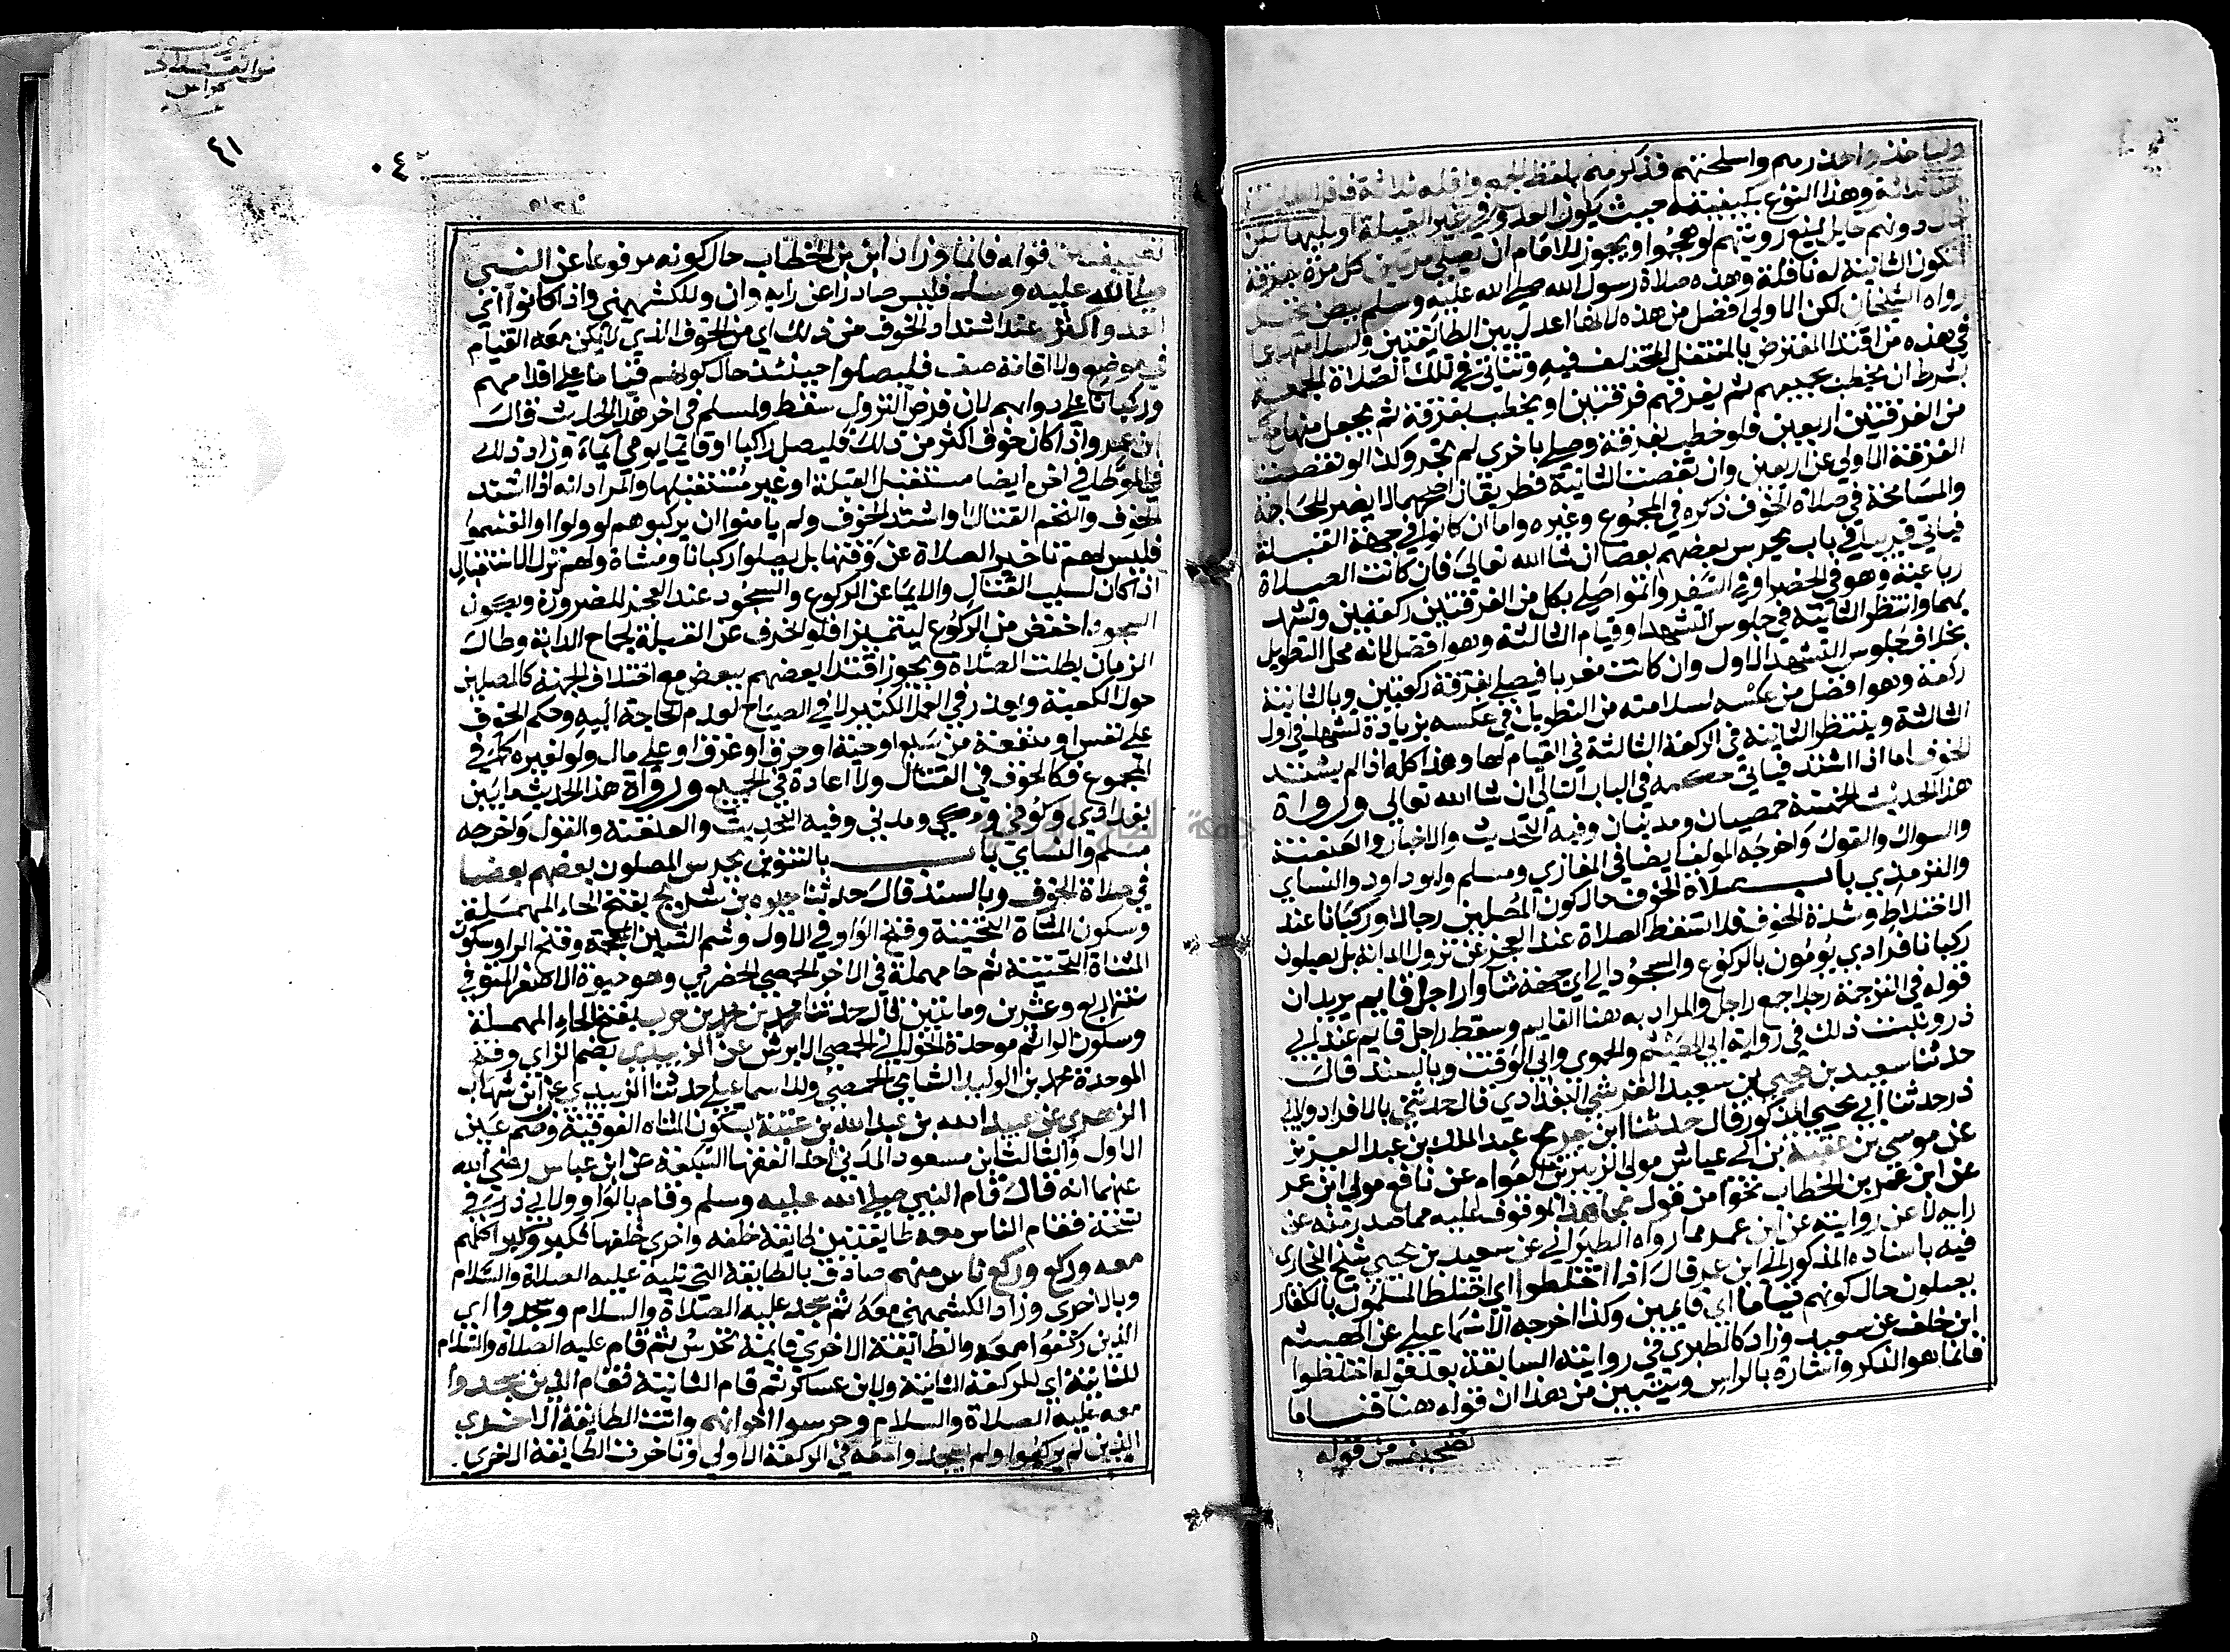 ولياخذوا حذرهم واسلحتهم فذكرهم بلفظ الجمع واقله ثلاثة فاقل الطائفة
هنا ثلاثة وهذا النوع بكيفيته حيث يكون العدو في غير القبلة او فيها لكن
حال دونهم حايل يمنع رويتهم لو هجموا ويجوز للامام ان يصلي مرتين كل مرة بفرقة
فتكون الثانية له نافلة وهذه صلاة رسول الله صلي الله عليه وسلم ببطن نخل
رواه الشيخان لكن الاولي افضل من هذه لانها اعدل بين الطايفتين ولسلامتها مما
في هذه من اقتدا المفترض بالمتنفل المختلف فيه وتتاتي في تلك الصلاة الجمعة
بشرط ان يخطب بجميعهم ثم يفرقهم فرقتين او يخطب بفرقة ثم يجعل منها مع كل
من الفرقتين اربعين فلو خطب بفرقة وصلي باخري لم تجز وكذا لو نقصت
الفرقة الاولي عن اربعين وان نقصت الثانية فطريقان اصحهما لا يضر للحاجة
والمسامحة في صلاة الخوف ذكره في المجموع وغيره واما ان كانوا في جهة القبلة
فياتي قريبا في باب يحرس بعضهم بعضا ان شا الله تعالي فان كانت الصلاة
رباعية وهو في الحضر او في السفر واتموا صلي بكل من الفرقتين ركعتين وتشهد
بهما وانتظر الثانية في جلوس التشهد او قيام الثالثة وهو افضل لانه محل التطويل
بخلاف جلوس التشهد الاول وان كانت مغربا فيصلي بفرقة ركعتين وبالثانية
ركعة وهو افضل من عكسه لسلامته من التطويل في عكسه بزيادة تشهد في اول
الثالثة وينتظر الثانية في الركعة الثالثة في القيام لها وهذا كله اذا لم يشتد
الخوف اما اذا اشتد فياتي حكمه في الباب التالي ان شا الله تعالي ورواة
هذا الحديث الخمسة حمصيان ومدنيان وفيه التحديث والاخبار والعنعنة
والسوال والقول واخرجه المولف ايضا في المغازي ومسلم وابو داود والنساي
والترمذي باب صلاة الخوف حال كون المصلين رجالا وركبانا عند
الاختلاط وشدة الخوف فلا تسقط الصلاة عند العجز عن نزول الدابة بل يصلون
ركبانا فرادي يومون بالركوع والسجود الي اي جهة شاوا راجل قايم يريد ان
قوله في الترجمة رجلا جمع راجل والمراد به هنا القايم وسقط راجل قايم عند ابي
ذر وثبت ذلك في رواية ابي الهيثم والحموي وابي الوقت وبالسند قال
حدثنا سعيد بن يحيي بن سعيد القرشي البغدادي قال حدثني بالافراد ولابي
ذر حدثنا ابي يحيي المذكور قال حدثنا ابن جريج عبد الملك بن عبد العزيز
عن موسي بن عقبة بن ابي عياش مولي الزبير بن العوام عن نافع مولي ابن عمر
عن ابن عمر بن الخطاب نحوا من قول مجاهد الموقوف عليه مما صدر منه عن
رايه لا عن روايته عن ابن عمر مما رواه الطبراني عن سعيد بن يحيي شيخ البخاري
فيه باسناده المذكور الي ابن عمر قال اذا اختلطوا اي اختلط المسلمون بالكفار
يصلون حال كونهم قياما اي قايمين وكذا اخرجه الاسماعيلي عن الهيثم
ابن خلف عن سعيد وزاد كالطبري في روايته السابقة بعد قوله اختلطوا
فانما هو الذكر واشارة بالراس وتبين من هذا ان قوله هنا قياما
تصحيف من قوله
٤٠
٤١
تصحيف من قوله فانما وزاد ابن بن الخطاب حال كونه مرفوعا عن النبي
صلي الله عليه وسلم فليس صادرا عن رايه وان وللكشمهني واذا كانوا اي
العدو اكثر عند اشتداد الخوف من ذلك اي من الخوف الذي لا يمكن معه القيام
في موضع ولا اقامة صف فليصلوا حينئذ حال كونهم قياما علي اقدامهم
وركبانا علي دوابهم لان فرض النزول سقط ولمسلم في اخر هذا الحديث قال
ابن عمر واذا كان خوف اكثر من ذلك فليصل راكبا او قايما يومي ايماء وزاد ذلك
في الموطا في اخره ايضا مستقبل القبلة او غير مستقبلها والمراد انه اذا اشتد
الخوف والتحم القتال واشتد الخوف ولم يامنوا ان يركبوهم لو ولوا او انقسموا
فليس لهم تاخير الصلاة عن وقتها بل يصلوا ركبانا ومشاة ولهم ترك الاستقبال
اذا كان لسبب القتال والايما عن الركوع والسجود عند العجز للضرورة ويكون
السجود اخفض من الركوع ليتميزا فلو انحرف عن القبلة لجماح الدابة وطال
الزمان بطلت الصلاة ويجوز اقتدا بعضهم ببعض مع اختلاف الجهة كالمصلين
حول الكعبة ويعذر في العمل الكثير لا في الصياح لعدم الحاجة اليه وحكم الخوف
علي نفس او منفعة من سبع او حية او حرق او غرق او علي مال ولو لغيره كما في
المجموع فكالخوف في القتال ولا اعادة في الجميع ورواة هذا الحديث ما بين
بغدادي وكوفي ومكي ومدني وفيه التحديث والعنعنة والقول واخرجه
مسلم والنساي باب بالتنوين يحرس المصلون بعضهم بعضا
في صلاة الخوف وبالسند قال حدثنا حيوه بن شريح بفتح الحاء المهملة
وسكون المثناة التحتية وفتح الواو في الاول وضم الشين المعجمة وفتح الرا وسكون
المثناة التحتية ثم حا مهملة في الاخر الحمصي الحضرمي وهو حيوة الاصغر المتوفي
سنة اربع وعشرين ومايتين قال حدثنا محمد بن حرب بفتح الحاء المهملة
وسكون الرا ثم موحدة الخولاني الحمصي الابرش عن الزبيدي بضم الزاي وفتح
الموحدة محمد بن الوليد الشامي الحمصي وللاسماعيلي حدثنا الزبيدي عن ابن شهاب
الزهري عن عبيد الله بن عبد الله بن عتبة بسكون المثناه الفوقية وضم عين
الاول والثالث ابن مسعود المدني احد الفقها السبعة عن ابن عباس رضي الله
عنهما انه قال قام النبي صلي الله عليه وسلم وقام بالواو ولابي ذر في
نسخة فقام الناس معه طايفتين طايفة خلفه واخري خلفها فكبر وكبروا كلهم
معه وركع وركع ناس منهم صادق بالطايفة التي تليه عليه الصلاة والسلام
وبالاخري وزاد الكشمهني معه ثم سجد عليه الصلاة والسلام وسجدوا اي
الذين ركعوا معه والطايفة الاخري قايمة تحرس ثم قام عليه الصلاة والسلام
للثانية اي للركعة الثانية ولابن عساكر ثم قام الثانية فقام الذين سجدوا
معه عليه الصلاة والسلام وحرسوا اخوانهم واتت الطايفة الاخري
الذين لم يركعوا ولم يسجدوا معه في الركعة الاولي وتاخرت الطايفة الاخري.